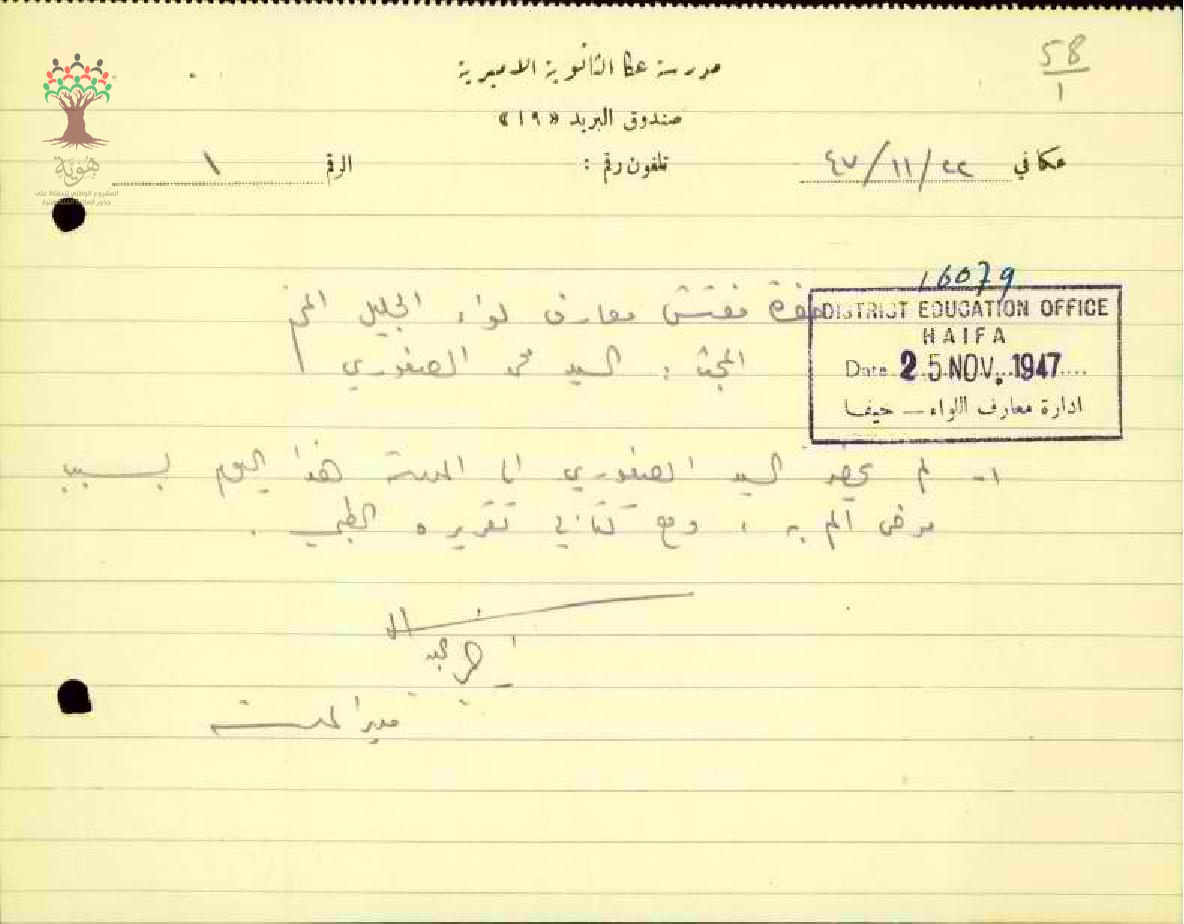 58
1
مدرسة عكا الثانوية الاميرية
صندوق البريد «١٩»
عكا في ٢٢/١١/٤٧ تلفون رقم : الرقم ١
هوية
المشروع الوطني للحفاظ على
جذور العائلة الفلسطينية
16079
DISTRICT EDUCATION OFFICE
HAIFA
Date 25 NOV. 1947
ادارة معارف اللواء — حيفا
حضرة مفتش معارف لواء الجليل
البحث : السيد محمد الصفوري
١- لم يحضر السيد الصفوري الى المدرسة هذا اليوم بسبب
مرض ألم به ، ومع كتابي تقريره الطبي .
مدير المدرسة